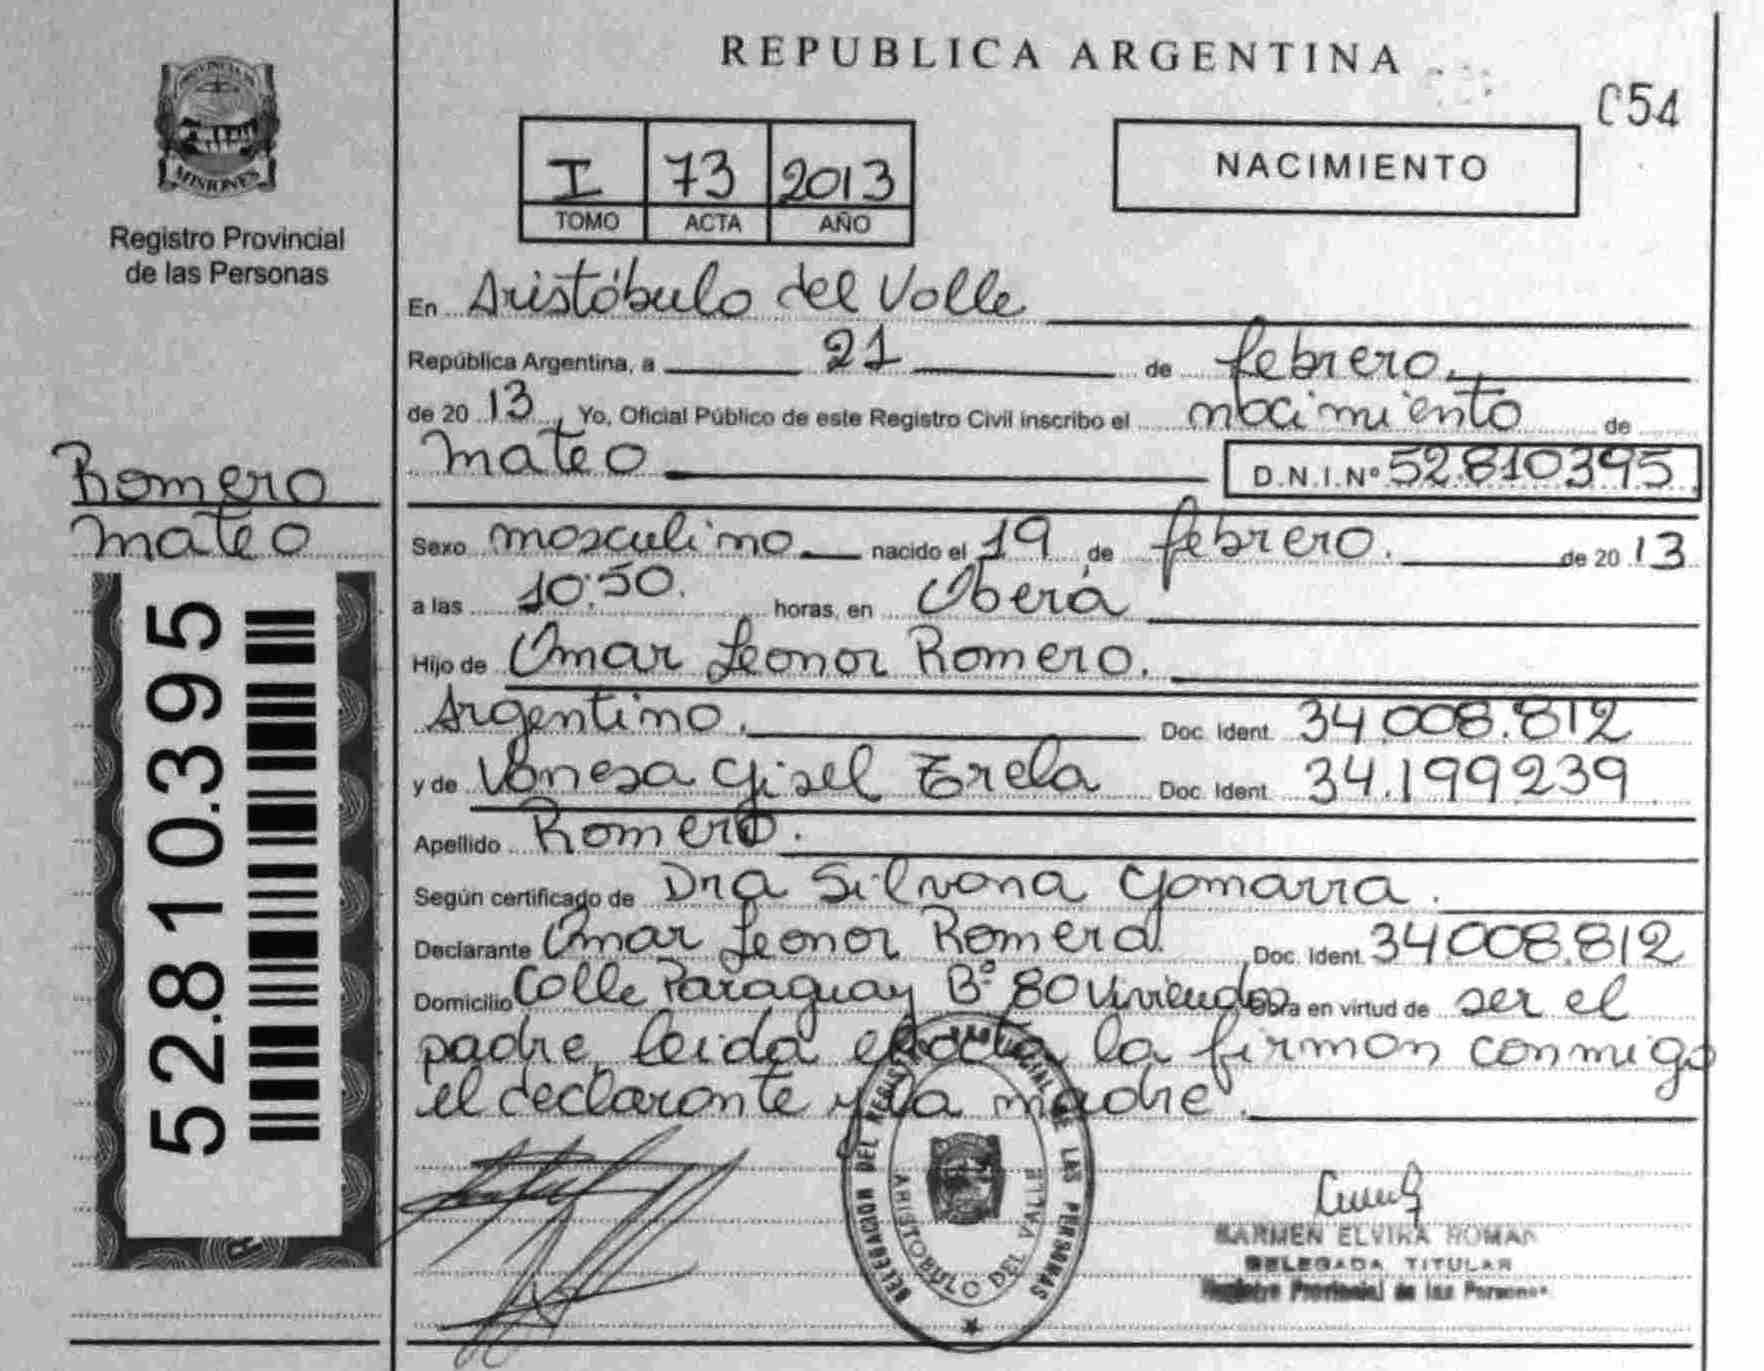 PROVINCIA DE
MISIONES
Registro Provincial
de las Personas
Romero
Mateo
52.810.395
REPUBLICA ARGENTINA
054
I 73 2013
TOMO ACTA AÑO
NACIMIENTO
En Aristóbulo del Valle
República Argentina, a 21 de febrero.
de 20 13, Yo, Oficial Público de este Registro Civil inscribo el nacimiento de
Mateo D.N.I.Nº 52.810395
Sexo masculino nacido el 19 de febrero. de 20 13
a las 10:50. horas, en Oberá
Hijo de Omar Leonor Romero.
Argentino. Doc. Ident. 34.008.812
y de Vanesa Gisel Doc. Ident. 34.199239
Apellido Romero.
Según certificado de Dra Silvana Gomarra.
Declarante Omar Leonor Romero. Doc. Ident. 34008.812
Domicilio Calle Paraguay Bº 80 Viviendas Obra en virtud de ser el
padre, leida el acta la firman conmigo
el declarante y la madre.
DELEGACION DEL REGISTRO PROVINCIAL DE LAS PERSONAS
ARISTOBULO DEL VALLE
CARMEN ELVIRA ROMAN
DELEGADA TITULAR
Registro Provincial de las Personas